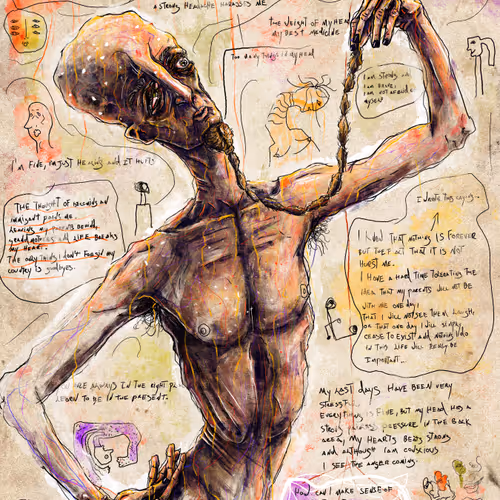 A STRONG HEADACHE HARASSES ME
THE WEIGHT OF MY HEAD
MY BEST MEDICINE
Too many things in my head
I am strong and
I am brave,
I am not afraid
myself
I'm FINE, I'M JUST HEALING AND IT HURTS
THE THOUGHT OF BECOMING AN
IMMIGRANT
LEAVING MY PARENTS BEHIND,
AND LIFE BREAKS
MY HEART..
THE ONLY THING I DON'T FORGIVE MY
COUNTRY IS GOODBYES.
I WROTE THIS CRYING...
I KNOW THAT NOTHING IS FOREVER
BUT THE FACT THAT IT IS NOT
HURTS ME.
I HAVE A HARD TIME TOLERATING THE
IDEA THAT MY PARENTS WILL NOT BE
WITH ME ONE DAY,
THAT I WILL NOT SEE THEM LAUGH,
OR THAT ONE DAY I WILL SIMPLY
CEASE TO EXIST AND NOTHING I DO
IN THIS LIFE WILL REALLY BE
IMPORTANT...
ARE ALWAYS IN THE RIGHT
LEARN TO BE IN THE PRESENT.
MY LAST DAYS HAVE BEEN VERY
EVERYTHING IS FINE, BUT MY HEAD HAS A
STRONG PRESSURE IN THE BACK
AREA, MY HEARTS BEATS STRONG
AND ALTHOUGH I AM CONSCIOUS
I SEE THE ANGER COMING
HOW CAN I MAKE SENSE OF